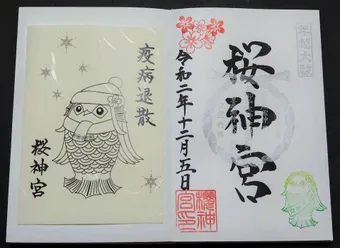 疫病退散
桜神宮
令和二年十二月五日
桜神宮
櫻神宮印